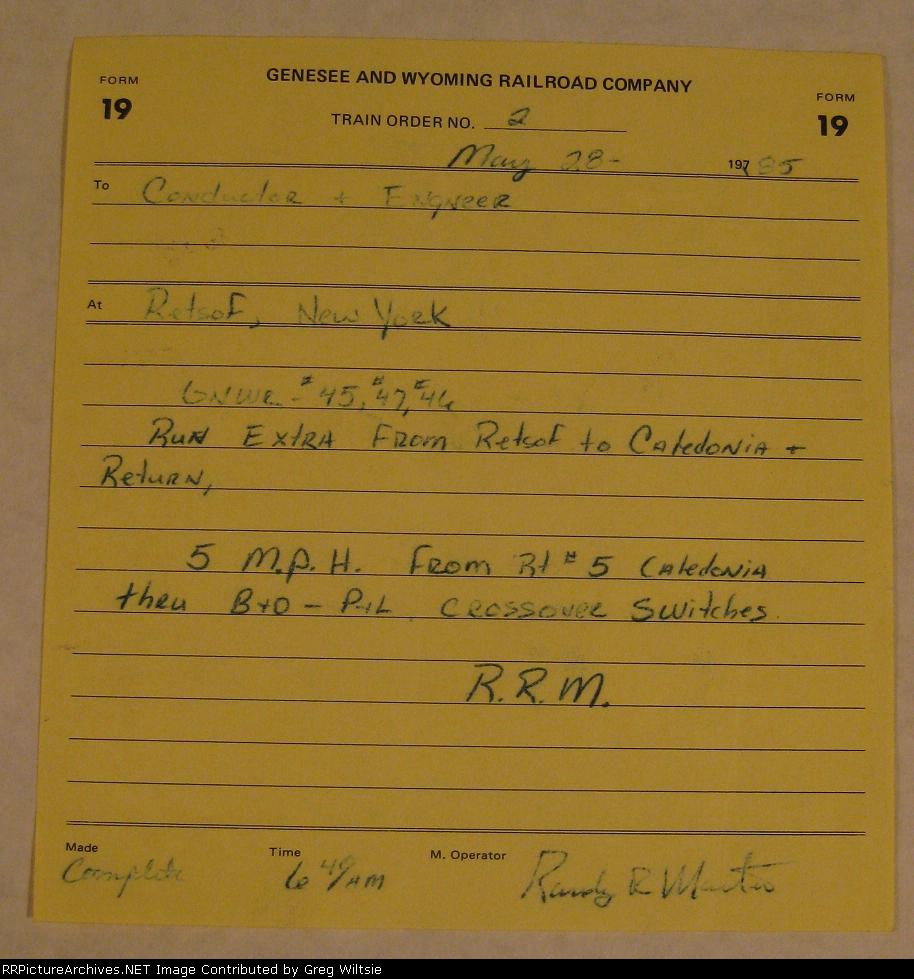 FORM
19
GENESEE AND WYOMING RAILROAD COMPANY
FORM
19
TRAIN ORDER NO. 2
May 28- 197 85
To Conductor + Engneer
At Retsof, New York
GNWR - #45, #47, #46
Run Extra From Retsof to Caledonia +
Return,
5 M.P.H. From Rt # 5 Caledonia
thru B+O - P+L crossover switches
R.R.M.
Made Complete Time 6 49/AM M. Operator Randy R
RRPictureArchives.NET Image Contributed by Greg Wiltsie